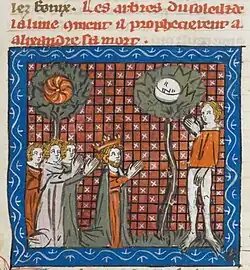 lez foux. Les arbres du soleil et
la lune qment il prophecierent a
alixandre sa mort.